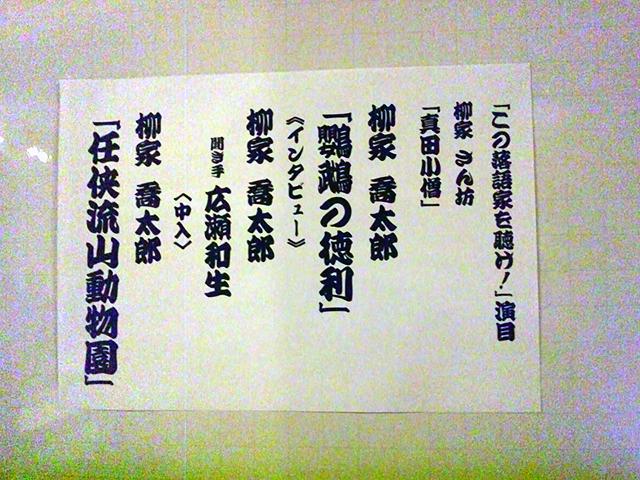 「この落語家を聴け！」演目
柳家 さん坊
「真田小僧」
柳家 喬太郎
「鸚鵡の徳利」
《インタビュー》
柳家 喬太郎
聞き手 広瀬和生
〈中入〉
柳家 喬太郎
「任侠流山動物園」